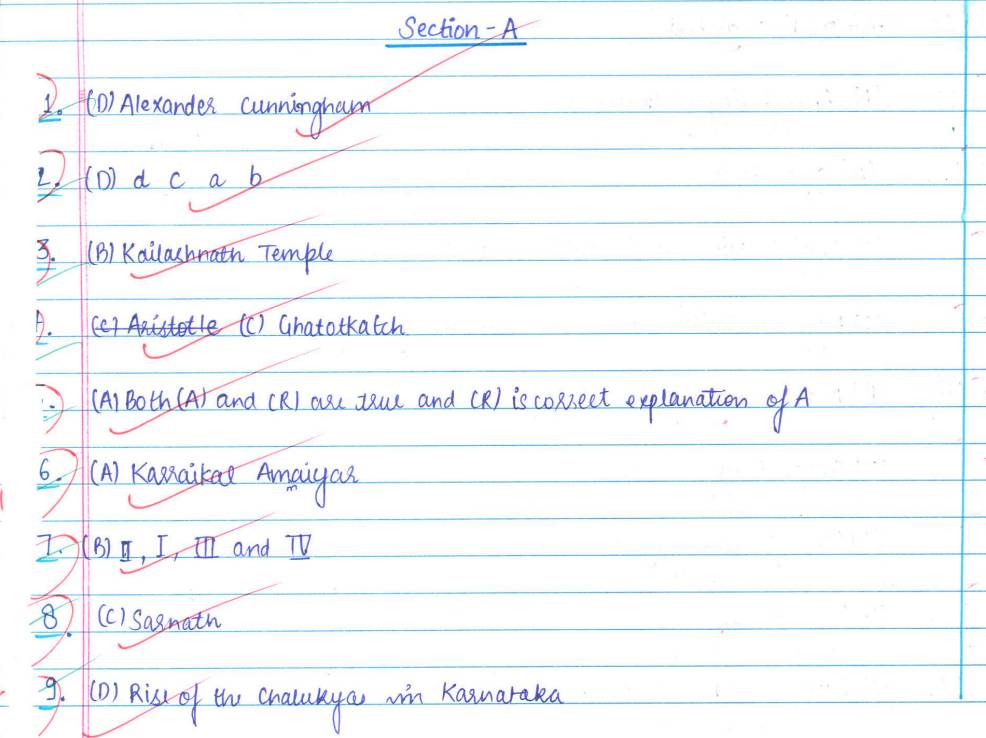 Section-A
1. (D) Alexander Cunningham
2. (D) d c a b
3. (B) Kailashnath Temple
4. (c) Aristotle (C) Ghatotkatch
(A) Both (A) and (R) are true and (R) is correct explanation of A
6. (A) Karraikal Amaiyar
m
7. (B) II, I, III and IV
8. (C) Sarnath
9. (D) Rise of the Chalukya in Karnataka